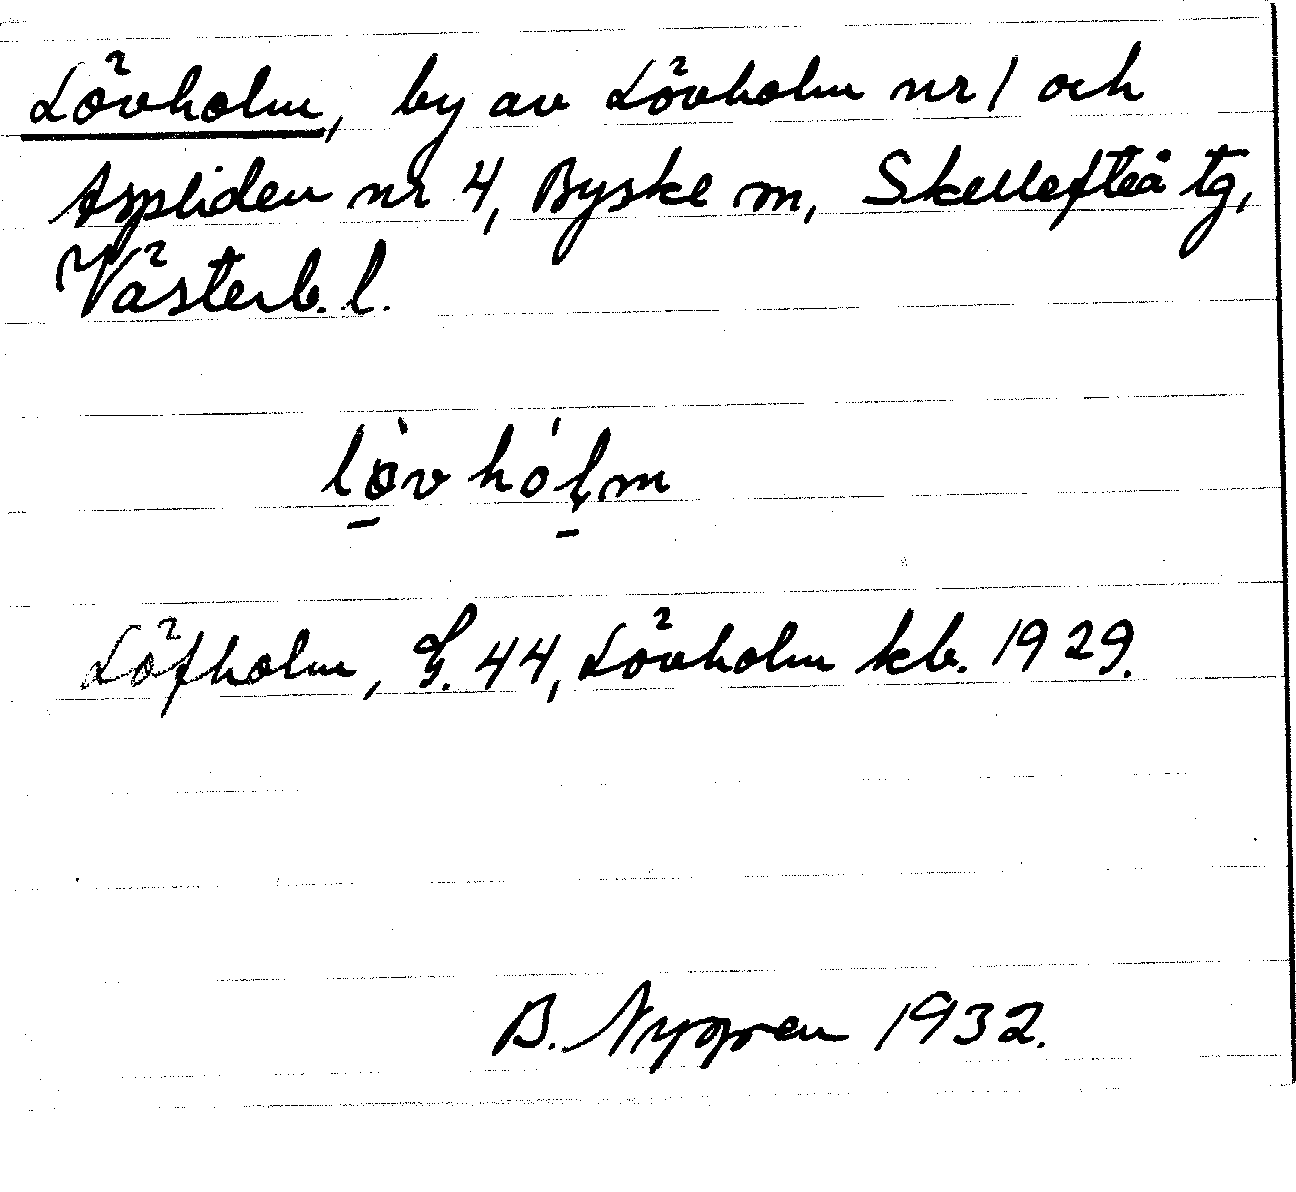 Lövholm, by av Lövholm nr 1 och
Aspliden nr 4, Byske sn, Skellefteå tg,
Västerb. l.
lòvhól̥m
Löfholm, G. 44, Lövholm kb. 1929.
B. Nygren 1932.